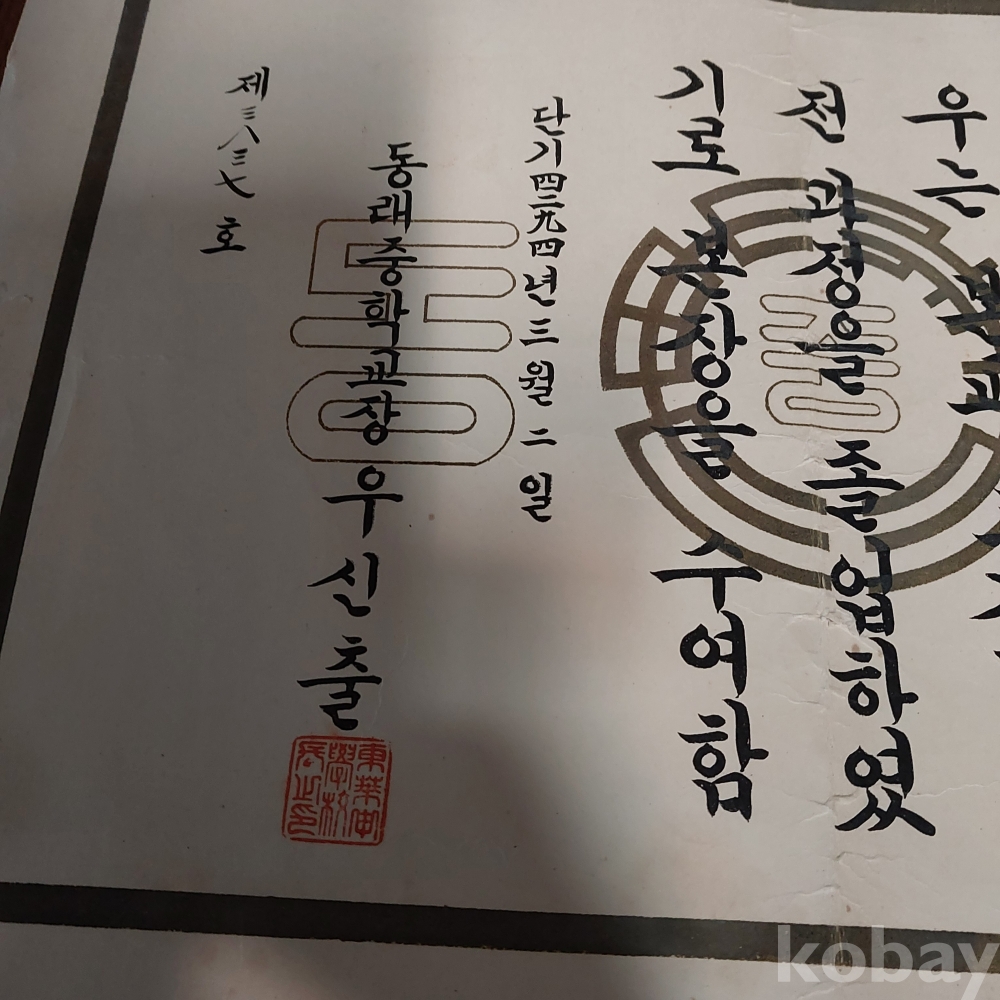 우는 본 과
전 과정을 졸업하였
기로 본장을 수여함
단기四二九四년 三월 二일
동래중학교장 우신출
제三八三七호
kobay